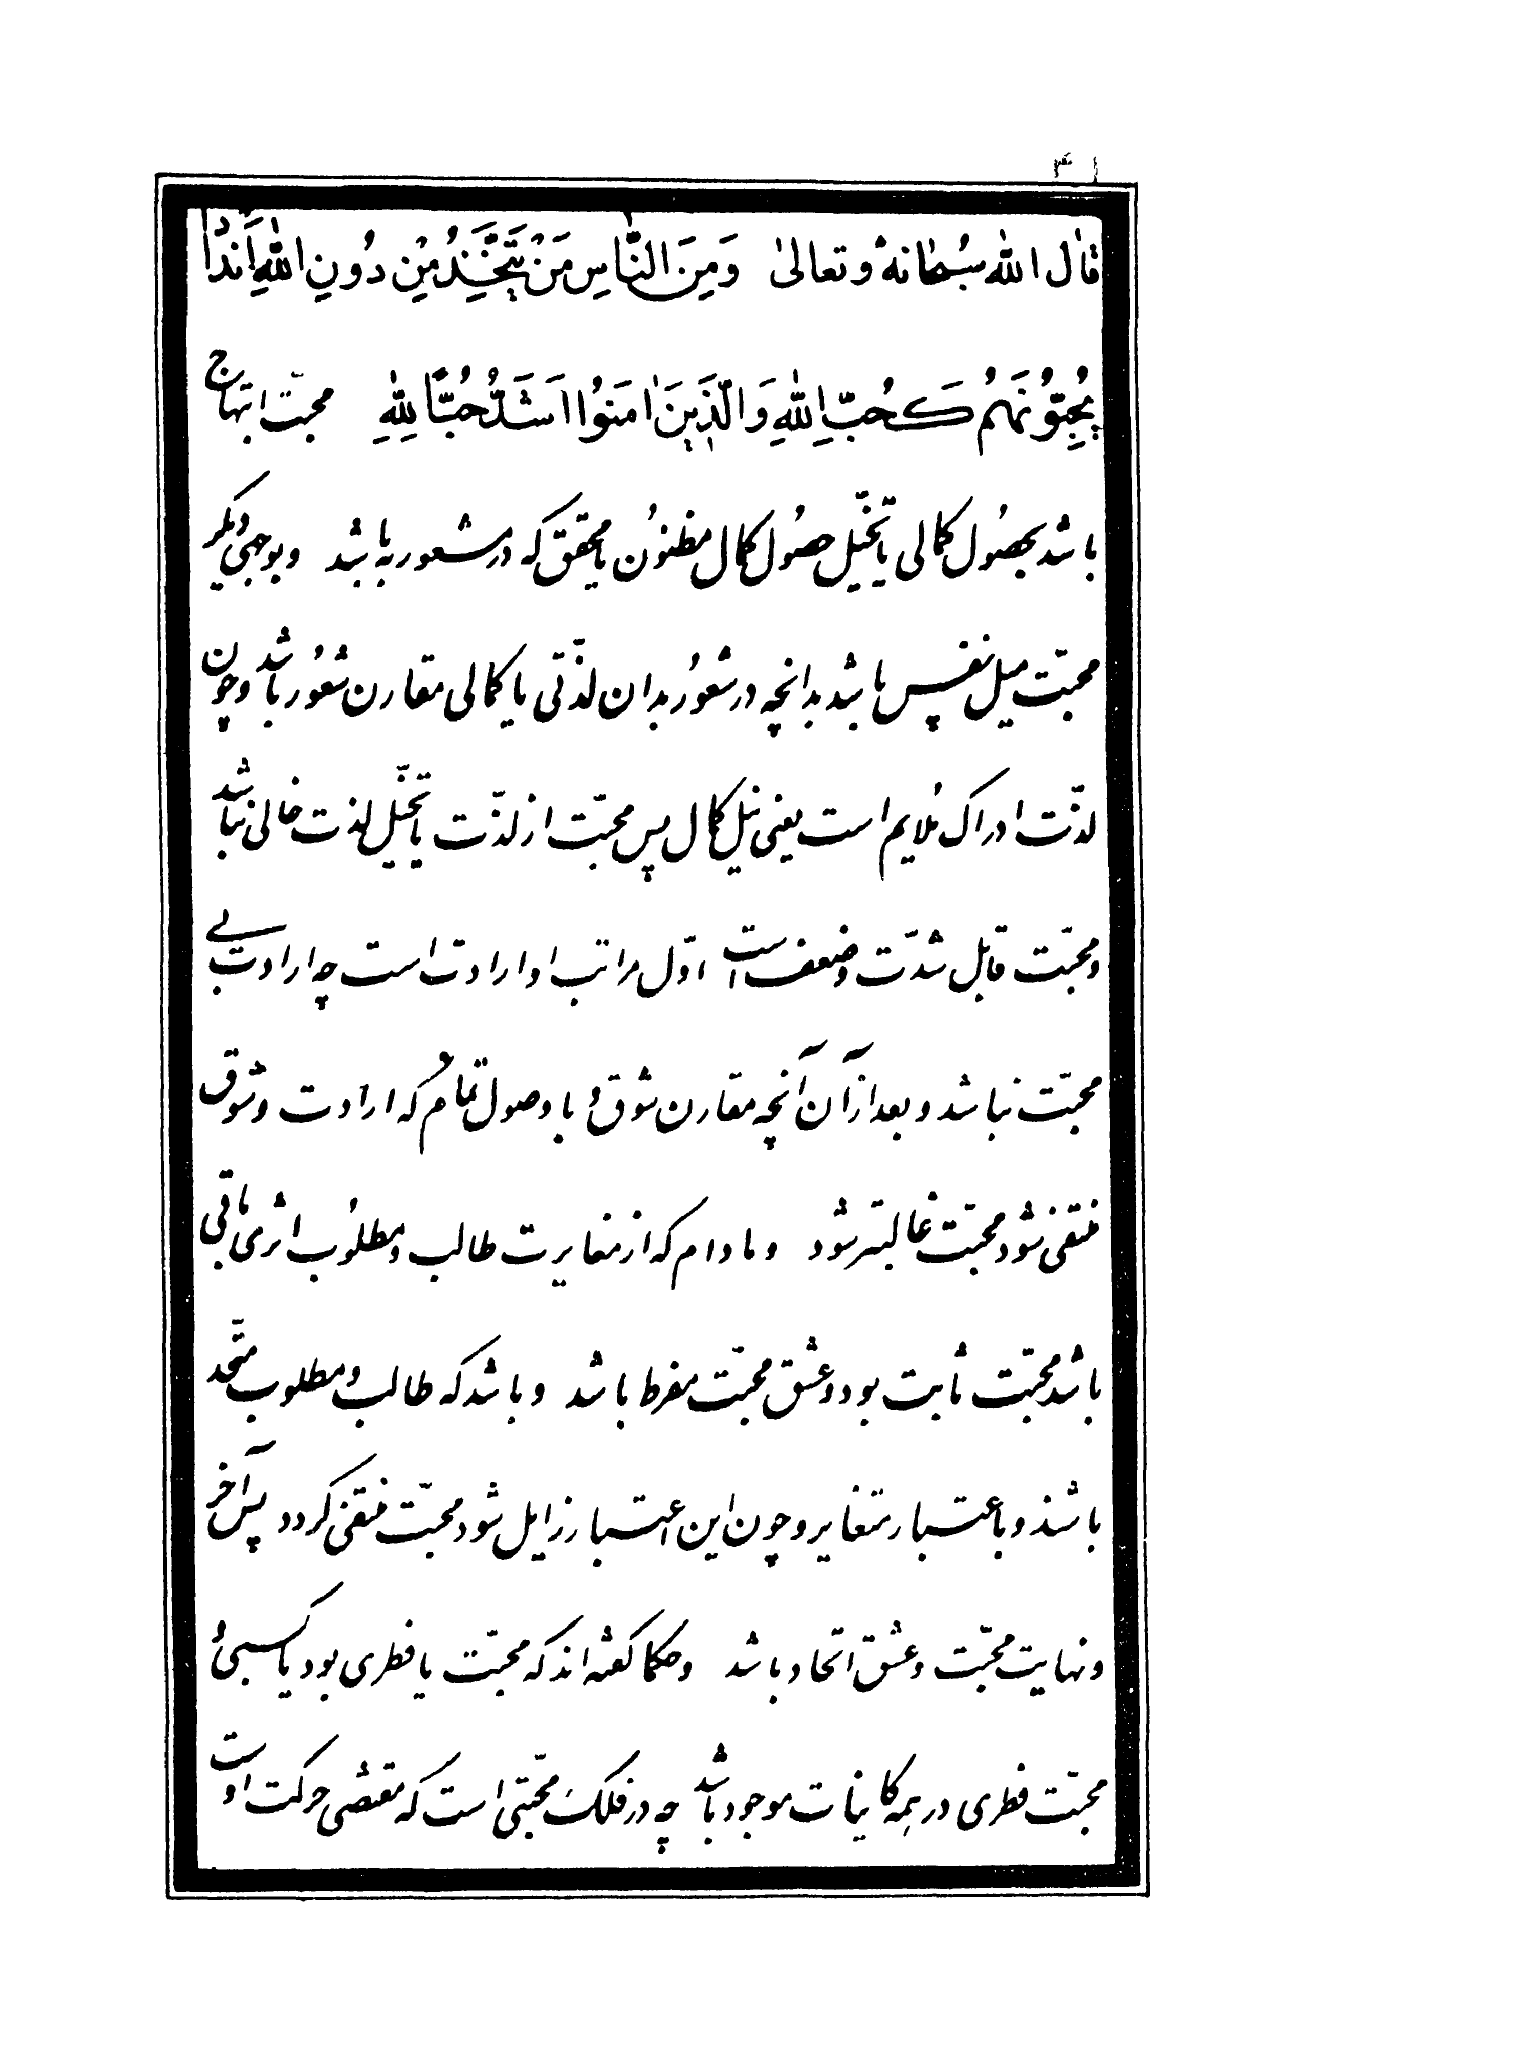 قال الله سبحانه و تعالیٰ وَمِنَ النَّاسِ مَنْ يَتَّخِذُ مِنْ دُونِ اللهِ اَندٰاداً
يُحِبُّونَهُم كَحُبِّ اللهِ وَالَّذِينَ اٰمَنوُا اَشَدُّ حُبًّا لِلهِ محبّت ابتهاج
باشد بحصُول کمالی یا تخیّل حصُول کمال مظنوُن یا محقق که در مشعور به باشد و بوجهی دیگر
محبّت میل نفس باشد بدانچه در شعوُر بدان لذّتی یا کمالی مقارن شعوُر باشد و چون
لذّت ادراک مُلایم است یعنی نیل کمال پس محبّت از لذّت یا تخیّل لذت خالی نباشد
و محبّت قابل شدّت و ضعف است اوّل مراتب او ارادت است چه ارادت بی
محبّت نباشد و بعد از آن آنچه مقارن شوق و با وصول تمام که ارادت و شوق
منتفی شود محبّت غالبتر شود و مادام که از مغایرت طالب و مطلوُب اثری باقی
باشد محبّت ثابت بود و عشق محبّت مفرط باشد و باشد که طالب و مطلوب متّحد
باشند و باعتبار متغایر و چون این اعتبار زایل شود محبّت منتفی گردد پس آخر
و نهایت محبّت و عشق اتحاد باشد و حکما گفته اند که محبّت یا فطری بود یا کسبی و
محبّت فطری در همه کاینات موجود باشد چه در فلک محبّتی است که مقتضی حرکت اوست